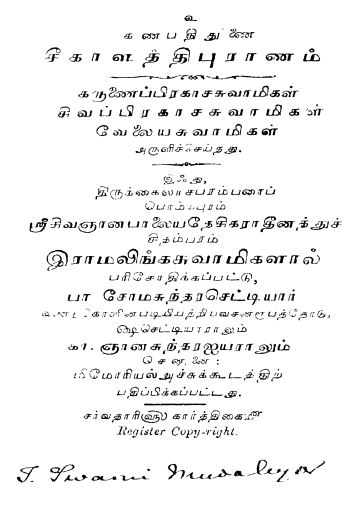 உ
கணபதிதுணை
சீகாளத்திபுராணம்
கருணைப்பிரகாசசுவாமிகள்
சிவப்பிரகாசசுவாமிகள்
வேலையசுவாமிகள்
அருளிச்செய்தது.
இஃது,
திருக்கைலாசபரம்பரைப்
பொம்மபுரம்
ஸ்ரீசிவஞானபாலையதேசிகராதீனத்துச்
சிதம்பரம்
இராமலிங்கசுவாமிகளால்
பரிசோதிக்கப்பட்டு,
பா சோமசுந்தரசெட்டியார்
ஷெ செட்டியாராலும்
கா. ஞானசுந்தரஐயராலும்
சென்னை:
மிமோரியல் அச்சுக்கூடத்திற்
பதிப்பிக்கப்பட்டது.
சர்வதாரிஸ்ரீ கார்த்திகைமீ
Register Copy-right.
T. Swami Mudaleyar